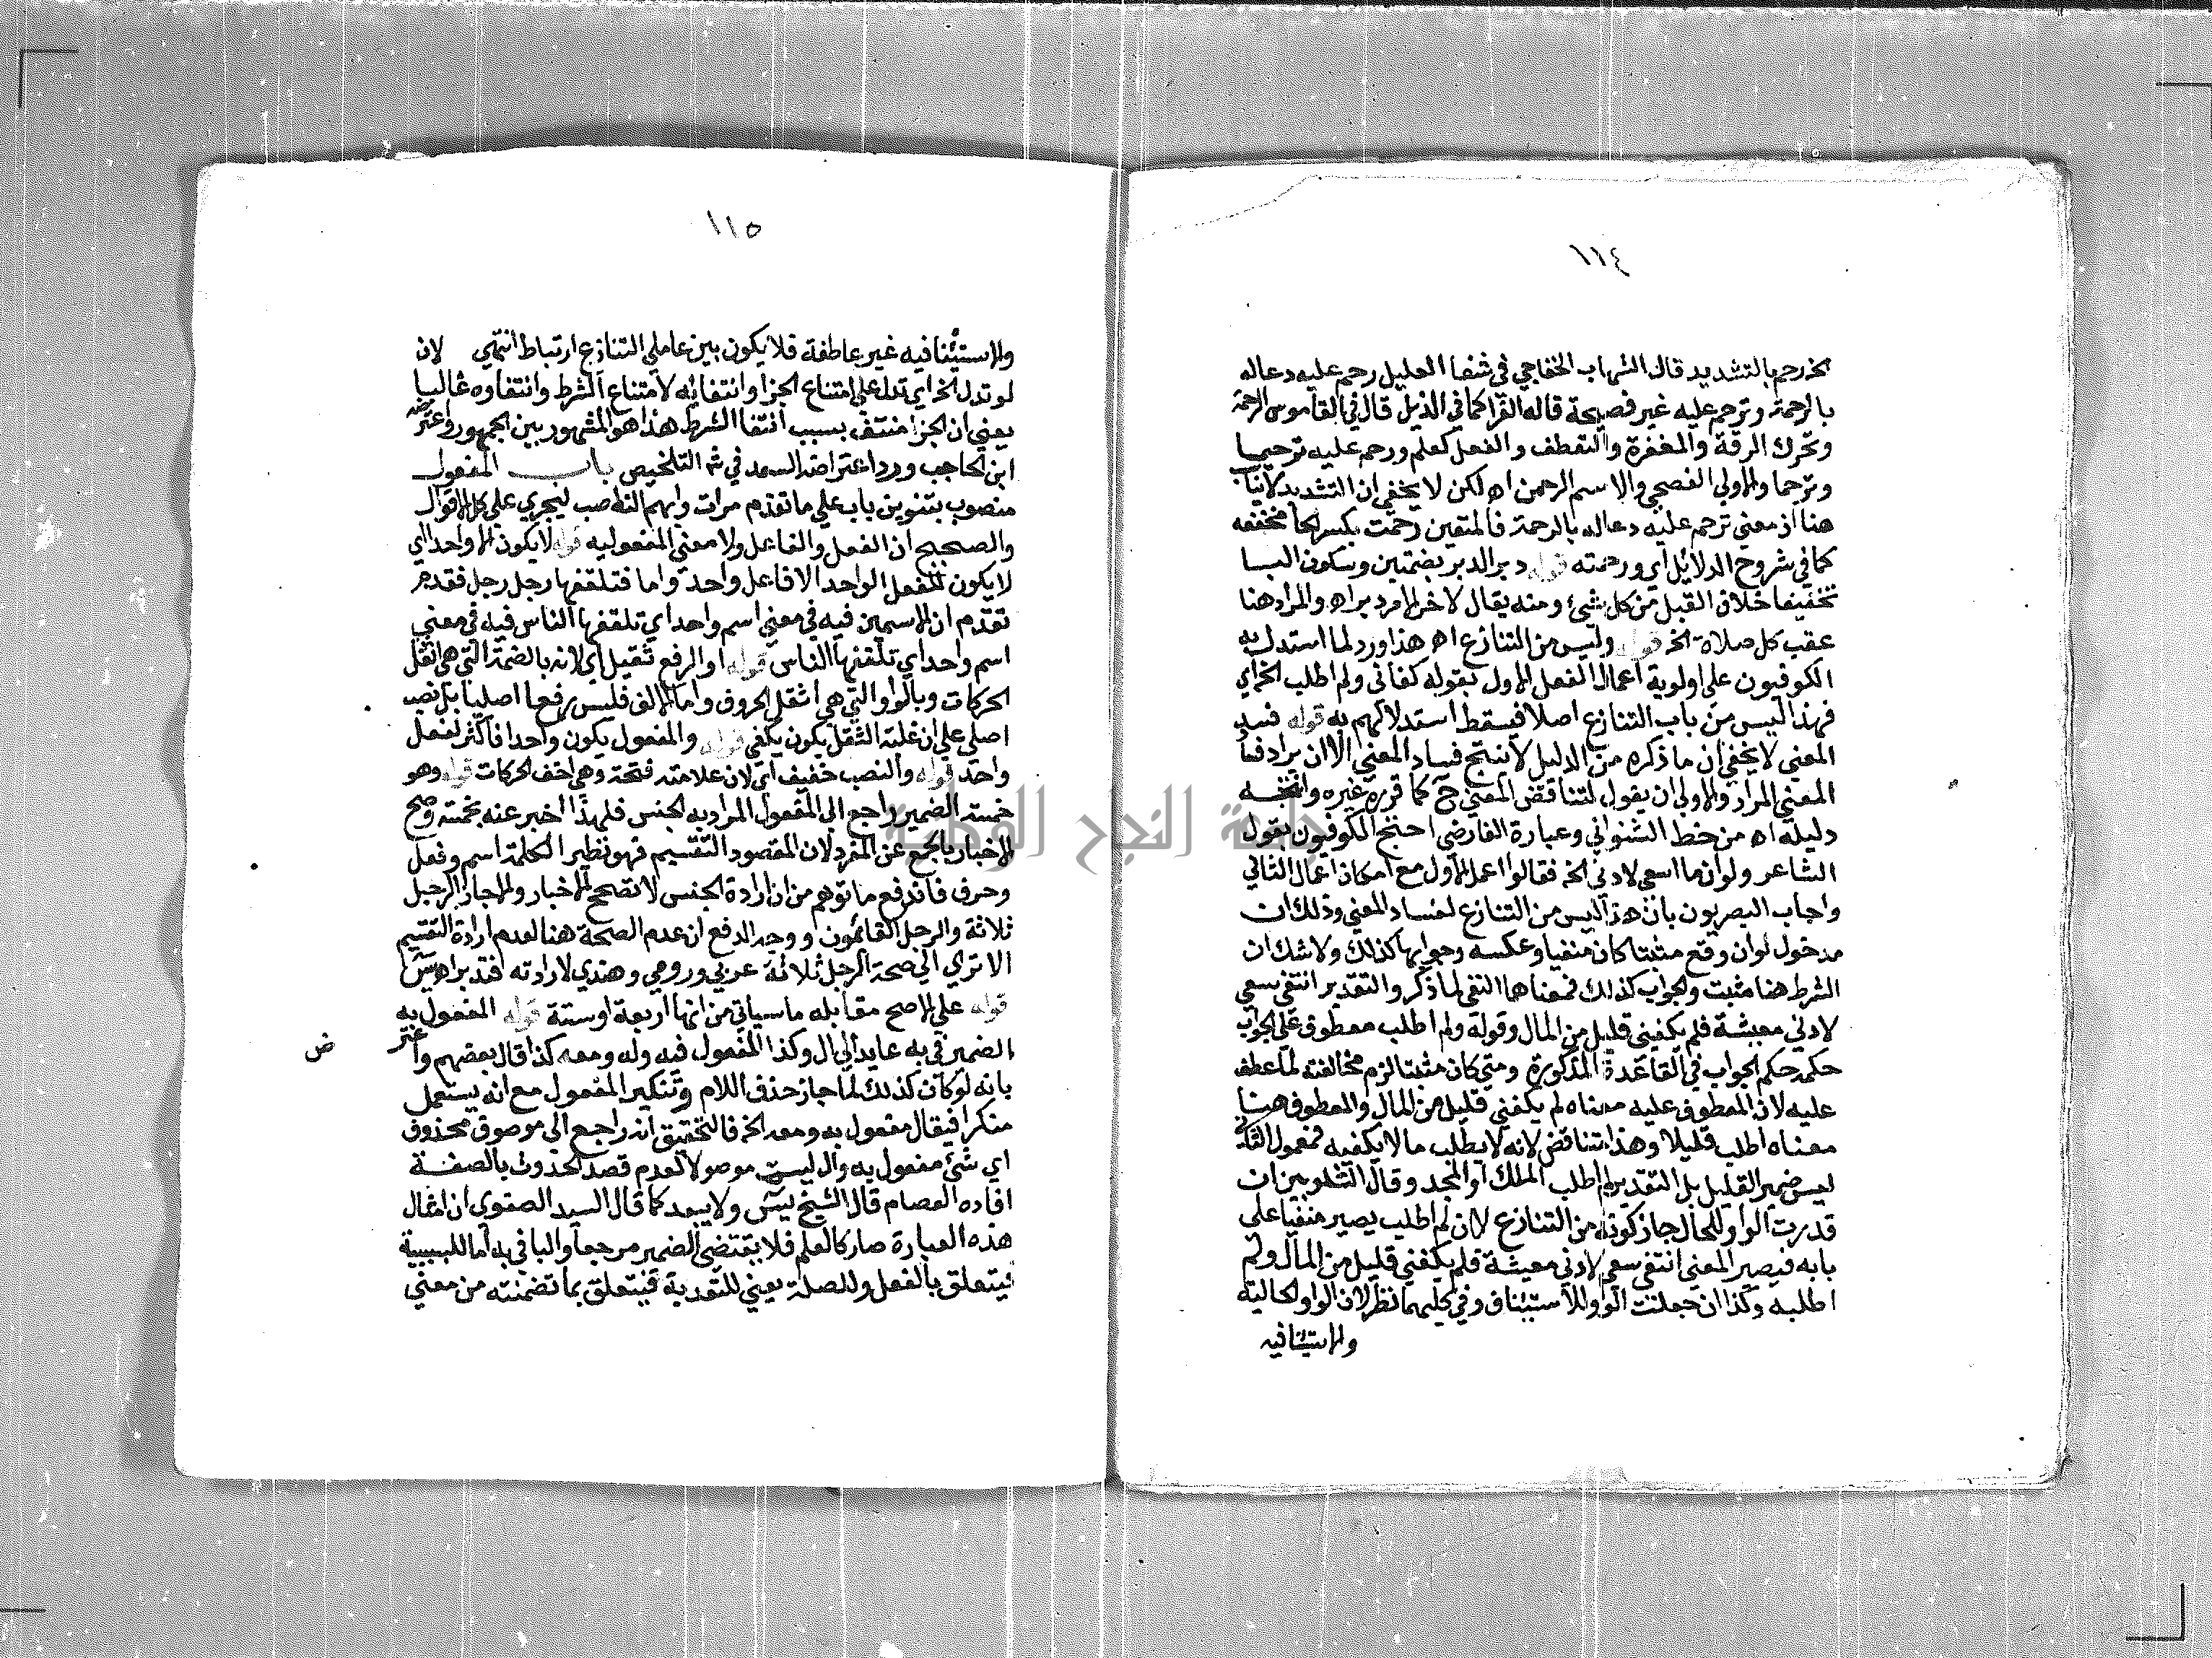 ١١٤
الخ رحم بالتشديد قال الشهاب الخفاجي في شفا العليل رحم عليه دعا له
بالرحمة وترحم عليه غير فصيحة قاله الفرا كما في الذيل قال في القاموس الرحمة
وتحرك الرقة والمغفرة والتعطف والفعل كعلم ورحم عليه ترحيما
وترحما والاولي الفصحي والاسم الرحمن اه لكن لا يخفي ان التشديد لا يناسب
هنا اذ معني ترحم عليه دعا له بالرحمة فالمتعين رحمت بكسر الحا مخففه
كما في شروح الدلائل اي ورحمته قوله دبر الدبر بضمتين وسكون البا
تخفيفا خلاف القبل من كل شئ ومنه يقال لاخر الامر دبر اه والمراد هنا
عقب كل صلاة الخ قوله وليس من التنازع اه هذا ورد لما استدل به
الكوفيون علي اولوية اعمال الفعل الاول بقوله كفاني ولم اطلب الخ اي
فهذا ليس من باب التنازع اصلا فيسقط استدلالهم به قوله فسد
المعني لا يخفي ان ما ذكره من الدليل لا ينتج فساد المعني الا ان يراد فساد
المعني المراد والاولي ان يقول لتناقض المعني ح كما قرره غيره وانتجه
دليله اه من خط الشنواني وعبارة الفارضي احتج الكوفيون بقول
الشاعر ولو ان ما اسعي لادني الخ فقالوا اعمل الاول مع امكان اعمال الثاني
واجاب البصريون بان هذا ليس من التنازع لفساد المعني وذلك ان
مدخول لو ان وقع مثبتا كان منفيا وعكسه وجوابها كذلك ولا شك ان
الشرط هنا مثبت والجواب كذلك فمعناهما النفي لما ذكر والتقدير انتفي سعي
لادني معيشة فلم يكفني قليل من المال وقوله ولم اطلب معطوف علي الجواب
حكمه حكم الجواب في القاعدة المذكورة ومتي كان مثبتا لزم مخالفته لما عطف
عليه لان المعطوف عليه معناه لم يكفني قليل من المال والمعطوف هنا
معناه اطلب قليلا وهذا تناقض لانه لا يطلب ما لا يكفيه فمعمول الثاني
ليس ضمير القليل بل التقدير لم اطلب الملك او المجد وقال الشلوبين ان
قدرت الواو للحال جاز كونه من التنازع لان لم اطلب يصير منفيا علي
بابه فيصير المعني انتفي سعي لادني معيشة فلم يكفني قليل من المال ولم
اطلبه وكذا ان جعلت الواو للاستئناف وفي كليهما نظر لان الواو الحالية
والاستئنافيه
١١٥
والاستئنافيه غير عاطفة فلا يكون بين عاملي التنازع ارتباط انتهي لان
لو تدل الخ اي تدل علي امتناع الجزا وانتفائه لامتناع الشرط وانتفاوه غالبا
يعني ان الجزا منتف بسبب انتفا الشرط هذا هو المشهور بين الجمهور واعترضه
ابن الحاجب ورد اعتراضه السعد في شر التلخيص باب المفعول
منصوب بتنوين باب علي ما تقدم مرات وابهم الناصب ليجري علي كل الاقوال
والصحيح ان الفعل والفاعل ولا معني المفعوليه قوله لا يكون الا واحدا اي
لا يكون للفعل الواحد الا فاعل واحد واما فتلقفها رجل رجل فقدم
تقدم ان الاسمين فيه في معني اسم واحد اي تلقفها الناس فيه في معني
اسم واحد اي تلقفها الناس قوله او الرفع ثقيل اي لانه بالضمة التي هي اثقل
الحركات وبالواو التي هي اثقل الحروف واما الالف فليس رفعها اصليا بل نصب
اصلي علي ان غلبة الثقل يكون يكفي قوله والمفعول يكون واحدا فاكثر لفعل
واحد قوله والنصب خفيف اي لان علامته فتحة وهي اخف الحركات قوله وهو
خمسة الضمير راجع الي المفعول المراد به الجنس فلهذا اخبر عنه بخمسة وصح
الاخبار بالجمع عن المفرد لان المقصود التقسيم فهو نظير الكلمة اسم وفعل
وحرف فاندفع ما توهم من ان ارادة الجنس لا تصحح الاخبار والا جاز الرجل
ثلاثة والرجل القائمون ووجه الدفع ان عدم الصحة هنا لعدم ارادة التقسيم
الا تري الي صحة الرجل ثلاثة عربي ورومي وهندي لارادته فتدبر اه يس
قوله علي الاصح مقابله ما سياتي من انها اربعة او ستة قوله المفعول به
الضمير في به عايد الي ال وكذا المفعول فيه وله ومعه كذا قال بعضهم واعتر
ض
بانه لو كان كذلك لما جاز حذف اللام وتنكير المفعول مع انه يستعمل
منكرا فيقال مفعول به ومعه الخ فالتحقيق انه راجع الي موصوف محذوف
اي شئ مفعول به وال ليست موصولا لعدم قصد الحدوث بالصفة
افاده العصام قال الشيخ يس ولا يبعد كما قال السيد الصفوي ان امثال
هذه العبارة صار كالعلم فلا يقتضي الضمير مرجعا والبا في به اما للسببية
فيتعلق بالفعل وللصلة يعني للتعدية فيتعلق بما تضمنته من معني
جامعة النجاح الوطنية